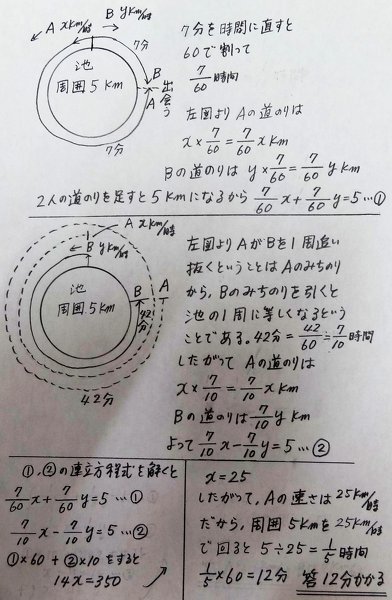 A xkm/時 B ykm/時
7分
池
周囲5km
B
A
出会う
7分
7分を時間に直すと
60で割って
7/60時間
左図より Aの道のりは
x×7/60=7/60xkm
Bの道のりは y×7/60=7/60ykm
2人の道のりを足すと5kmになるから 7/60x+7/60y=5…①
A xkm/時
B ykm/時
池
周囲5km
B A
42分
42分
左図より AがBを1周追い
抜くということは Aのみちのり
から、Bのみちのりを引くと
池の1周に等しくなるという
ことである。42分=42/60=7/10時間
したがって Aの道のりは
x×7/10=7/10xkm
Bの道のりは7/10ykm
よって7/10x-7/10y=5…②
①,②の連立方程式を解くと
7/60x+7/60y=5…①
7/10x-7/10y=5…②
①×60+②×10をすると
14x=350
x=25
したがって、Aの速さは25km/時
だから、周囲5kmを25km/時
で回ると 5÷25=1/5時間
1/5×60=12分 答12分かかる